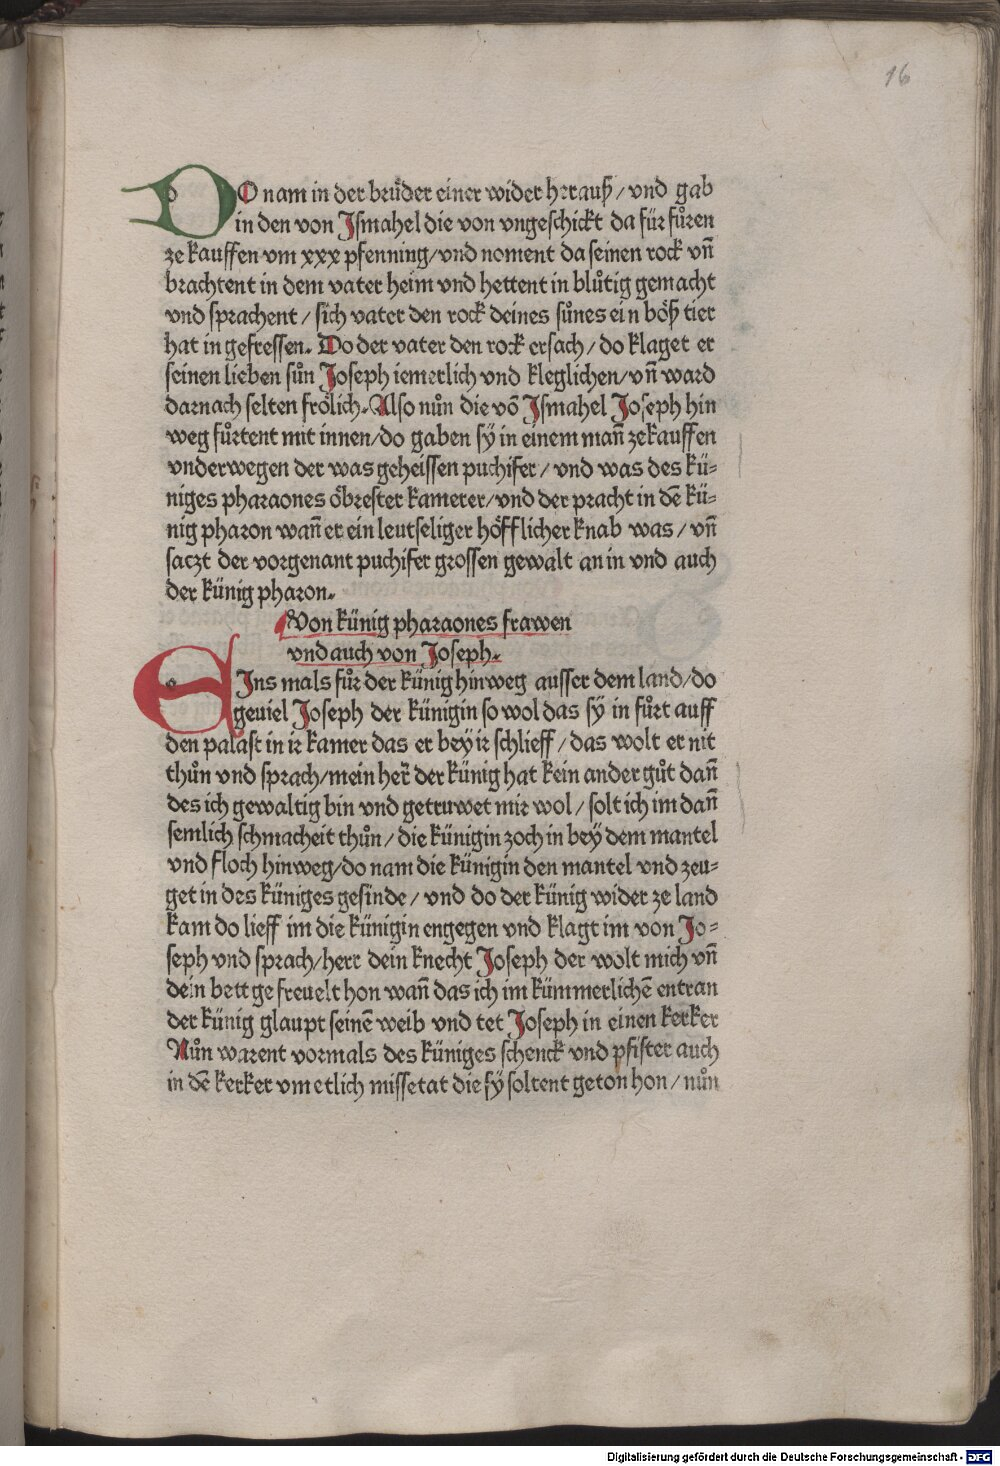 16
DO nam in der bruͤder einer wider hrrauß / vnd gab
in den von Jsmahel die von vngeschickt da für fuͦren
ze kauffen vm xxx pfenning / vnd noment da seinen rock vn̄
brachtent in dem vater heim vnd hettent in bluͦtig gemacht
vnd sprachent / sich vater den rock deines suͦnes ein boͤß tier
hat in gefressen. Do der vater den rock ersach / do klaget er
seinen lieben suͦn Joseph iemerlich vnd kleglichen / vn̄ ward
darnach selten froͤlich. Also nuͦn die vō Jsmahel Joseph hin
weg fuͦrtent mit innen / do gaben sÿ in einem man̄ ze kauffen
vnderwegen der was geheissen puchifer / vnd was des kü⸗
niges pharaones oͤbrester kamerer / vnd der pracht in dē kü⸗
nig pharon wan̄ er ein leutseliger hoͤfflicher knab was / vn̄
saczt der vorgenant puchifer grossen gewalt an in vnd auch
der künig pharon.
Von künig pharaones frawen
vnd auch von Joseph.
EJns mals fuͦr der künig hinweg ausser dem land / do
geuiel Joseph der künigin so wol das sÿ in fuͦrt auff
den palast in ir kamer das er bey ir schlieff / das wolt er nit
thuͦn vnd sprach / mein her̄ der künig hat kein ander guͦt dan̄
des ich gewaltig bin vnd getruwet mir wol / solt ich im dan̄
semlich schmacheit thuͦn / die künigin zoch in beÿ dem mantel
vnd floch hinweg / do nam die künigin den mantel vnd zeu⸗
get in des küniges gesinde / vnd do der künig wider ze land
kam do lieff im die künigin engegen vnd klagt im von Jo⸗
seph vnd sprach / herr dein knecht Joseph der wolt mich vn̄
dein bett gefreuelt hon wan̄ das ich im kümmerlichē entran
der künig glaupt seinē weib vnd tet Joseph in einen kerker
Nuͦn warent vormals des küniges schenck vnd pfister auch
in dē kerker vm etlich missetat die sÿ soltent geton hon / nuͦn
Digitalisierung gefördert durch die Deutsche Forschungsgemeinschaft - DFG